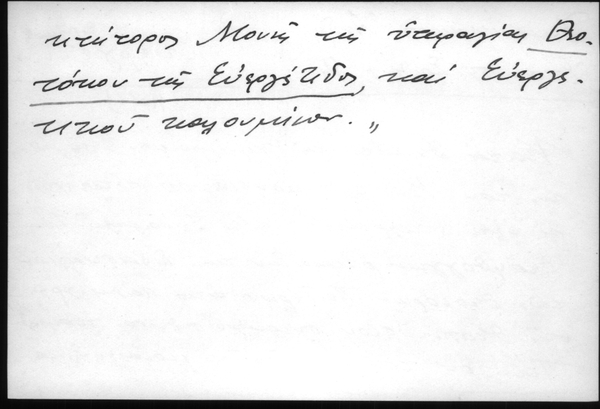 κτήτορος Μονῆς τῆς ὑπεραγίας Θεο-
τόκου τῆς Εὐεργέτιδος, καί Εὐεργε-
τικοῦ καλουμένου. „